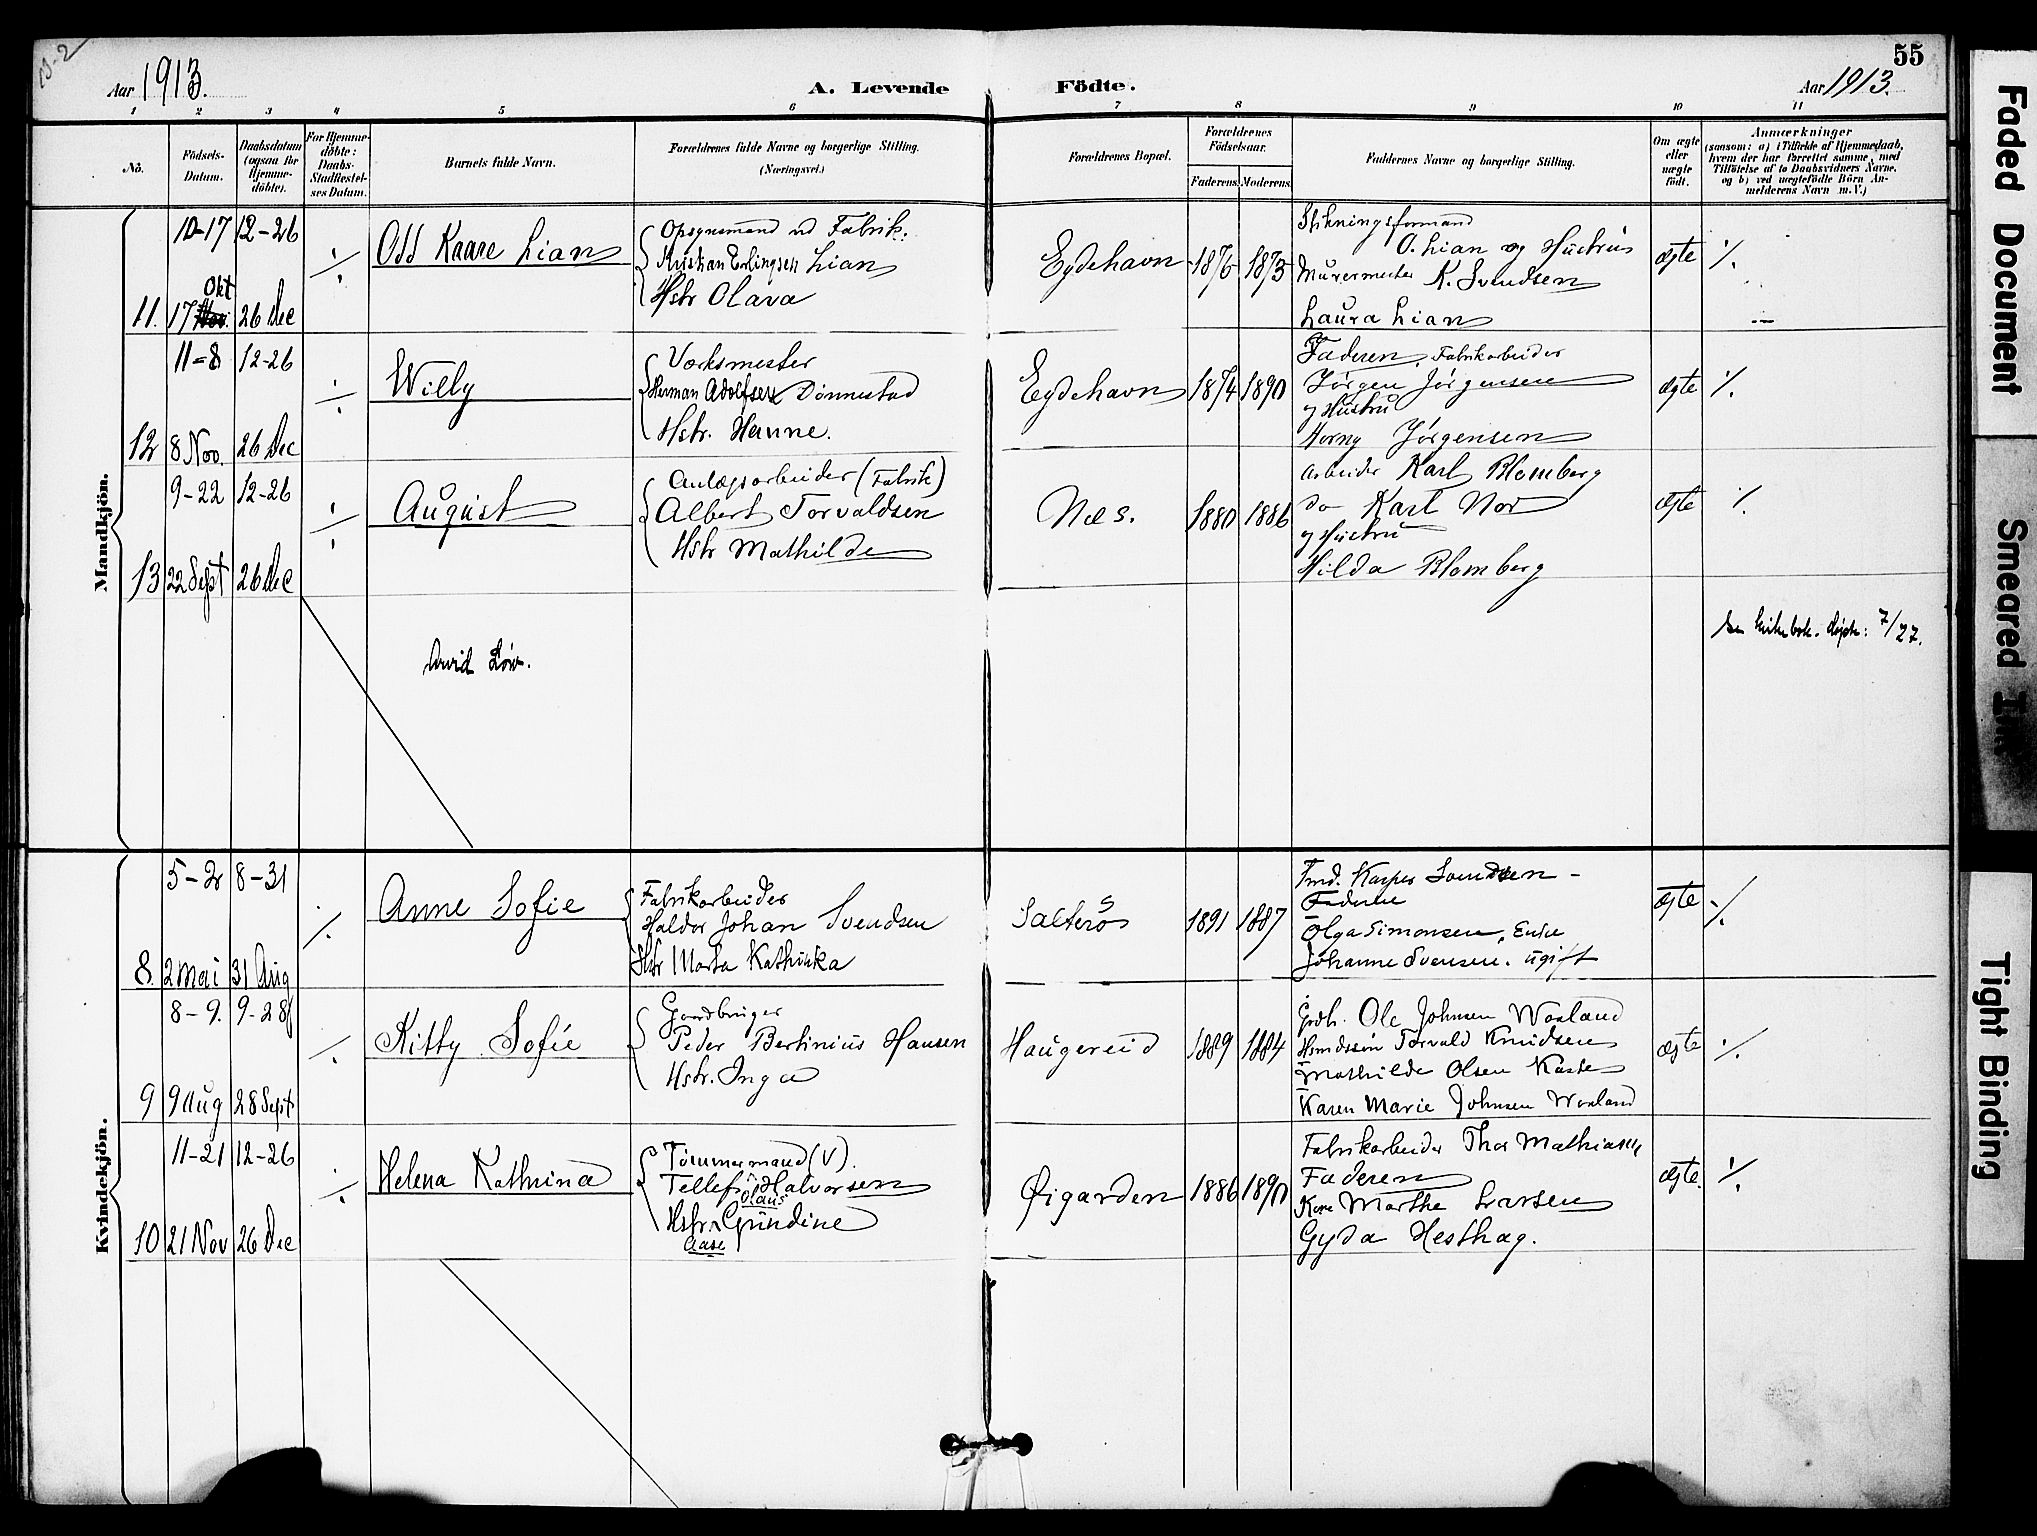 13-2
Aar 1913.
A. Levende Födte.
Aar 1913.
55
1 2 3 4 5 6 7 8 9 10 11
No.
Födsels-
Datum.
Daabsdatum
(ogsaa for
Hjemme-
döbte).
For Hjemme-
döbte:
Daabs-
Stadfæstel-
ses Datum.
Barnets fulde Navn.
Forældrenes fulde Navne og borgerlige Stilling.
(Næringsvei.)
Forældrenes Bopæl.
Forældrenes
Födselsaar.
Faderens. Moderens.
Faddernes Navne og borgerlige Stilling.
Om ægte
eller
uægte
födt.
Anmærkninger
(saasom: a) i Tilfælde af Hjemmedaab,
hvem der har forrettet samme, med
Tilföielse af to Daabsvidners Navne,
og b) ved uægtefödte Börn An-
melderens Navn m. V.)
Mandkjön.
11. 10-17 12-26
17 Okt 26 Dec
÷
Odd Kaare Lian
Opsynsmand vd Fabrik.
Kristian Erlingsen Lian
Hstr Olava
Eydehavn
1876 1873
Stikningsformand
O. Lian og Hustru
Murermester K. Svendsen
Laura Lian
ægte
%
12 11-8 12-26
8 Nov. 26 Dec
÷
Willy
Værksmester
Herman Adolfsen Dønnestad
Hstr. Hanne.
Eydehavn
1874 1890
Faderen, Fabrikarbeider
Jørgen Jørgensen
og Hustru
Horny Jørgensen
ægte
%
13 9-22 12-26
22 Sept 26 Dec
÷
August
Anlægsarbeider (Fabrik)
Albert Torvaldsen
Hstr Mathilde
Næs.
1880 1886
Arbeider Karl Blomberg
do Karl Nor
og Hustru
Hilda Blomberg
ægte
%
Arvid Löv.
Se kirkebok. døpte: 7/27.
Kvindekjön.
8. 5-2 8-31
2 Mai 31 Aug
÷
Anne Sofie
Fabrikarbeider
Haldor Johan Svendsen
Hstr Marta Kathinka
Salterøs
1891 1887
Fmd. Kasper Svendsen -
Faderen
Olga Simonsen, Enke
Johanne Svensen. ugift
ægte
%
9 8-9. 9-28
9 Aug 28 Sept
÷
Kitty Sofie
Gaardbruger
Peder Bertinius Hansen
Hstr. Inga
Haugereid
1889 1884
Grdb. Ole Johnsen Woxland
Hmdssøn Torvald Knudsen
Mathilde Olsen Kaste
Karen Marie Johnsen Woxland
ægte
%
10 11-21 12-26
21 Nov 26 Dec
÷
Helena Kathrina
Tømmermand (V).
Tellef Olaus Halvorsen
Hstr. Aase Gundine
Øigarden
1886 1890
Fabrikarbeider Thor Mathiasen
Faderen
Kone Marthe Larsen
Gyda Hesthag.
ægte.
%
Faded Document
Smeared Ink
Tight Binding